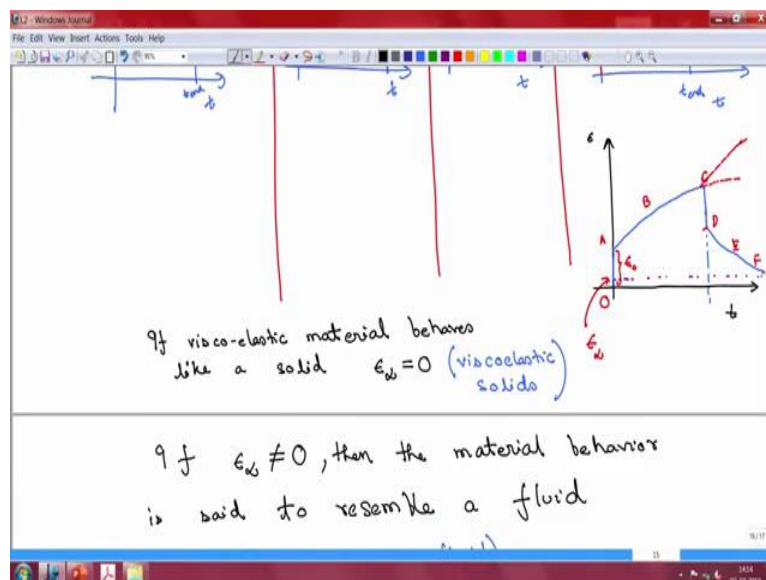 L2 - Windows Journal
File Edit View Insert Actions Tools Help
t
t
t
t
ϵ
A
B
C
D
E
F
ϵ₀
O
t
ϵ∞
If visco-elastic material behaves
like a solid ϵ∞ = 0 (viscoelastic
solids)
If ϵ∞ ≠ 0, then the material behavior
is said to resemble a fluid
15
14:14